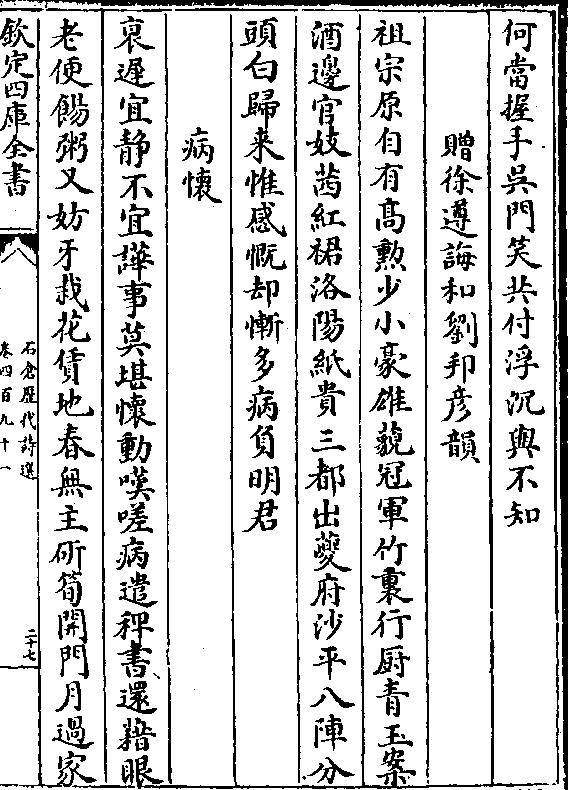 何當握手吳門笑共付浮沉與不知
贈徐遵誨和劉邦彦韻
祖宗原自有髙勲少小豪雄藐冠軍竹裏行厨青玉案
酒邊官妓茜紅裙洛陽紙貴三都出夔府沙平八陣分
頭白歸来惟感慨却慚多病負明君
病懷
衰遲宜静不宜譁事莫堪懐動嘆嗟病遣秤書還藉眼
老便餳粥又妨牙栽花賃地春無主斫筍開門月過家
欽定四庫全書
石倉歴代詩選
卷四百九十一
二十七